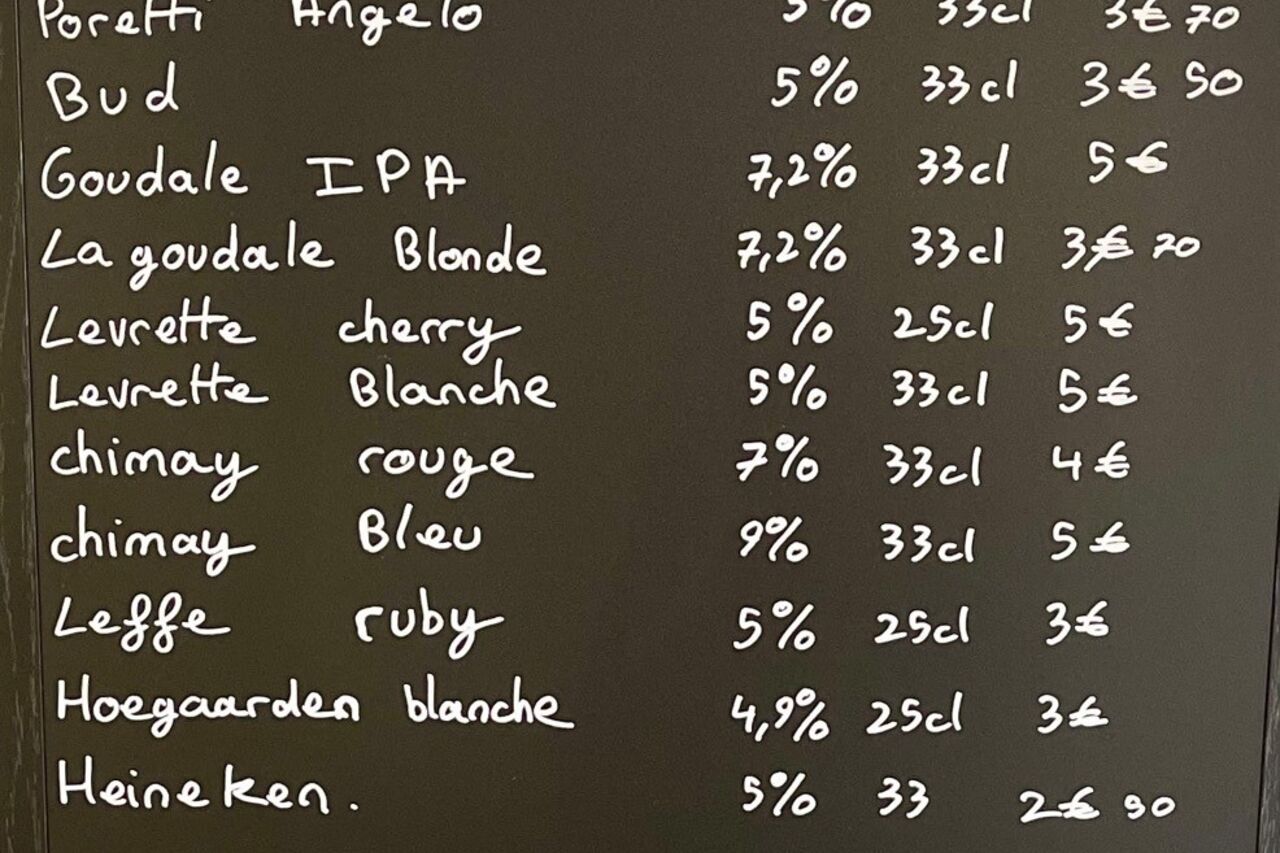 Poretti Angelo 5% 33cl 3€ 70
Bud 5% 33cl 3€ 50
Goudale IPA 7,2% 33cl 5€
La goudale Blonde 7,2% 33cl 3€ 70
Levrette cherry 5% 25cl 5€
Levrette Blanche 5% 33cl 5€
chimay rouge 7% 33cl 4€
chimay Bleu 9% 33cl 5€
Leffe ruby 5% 25cl 3€
Hoegaarden blanche 4,9% 25cl 3€
Heineken. 5% 33 2€ 90